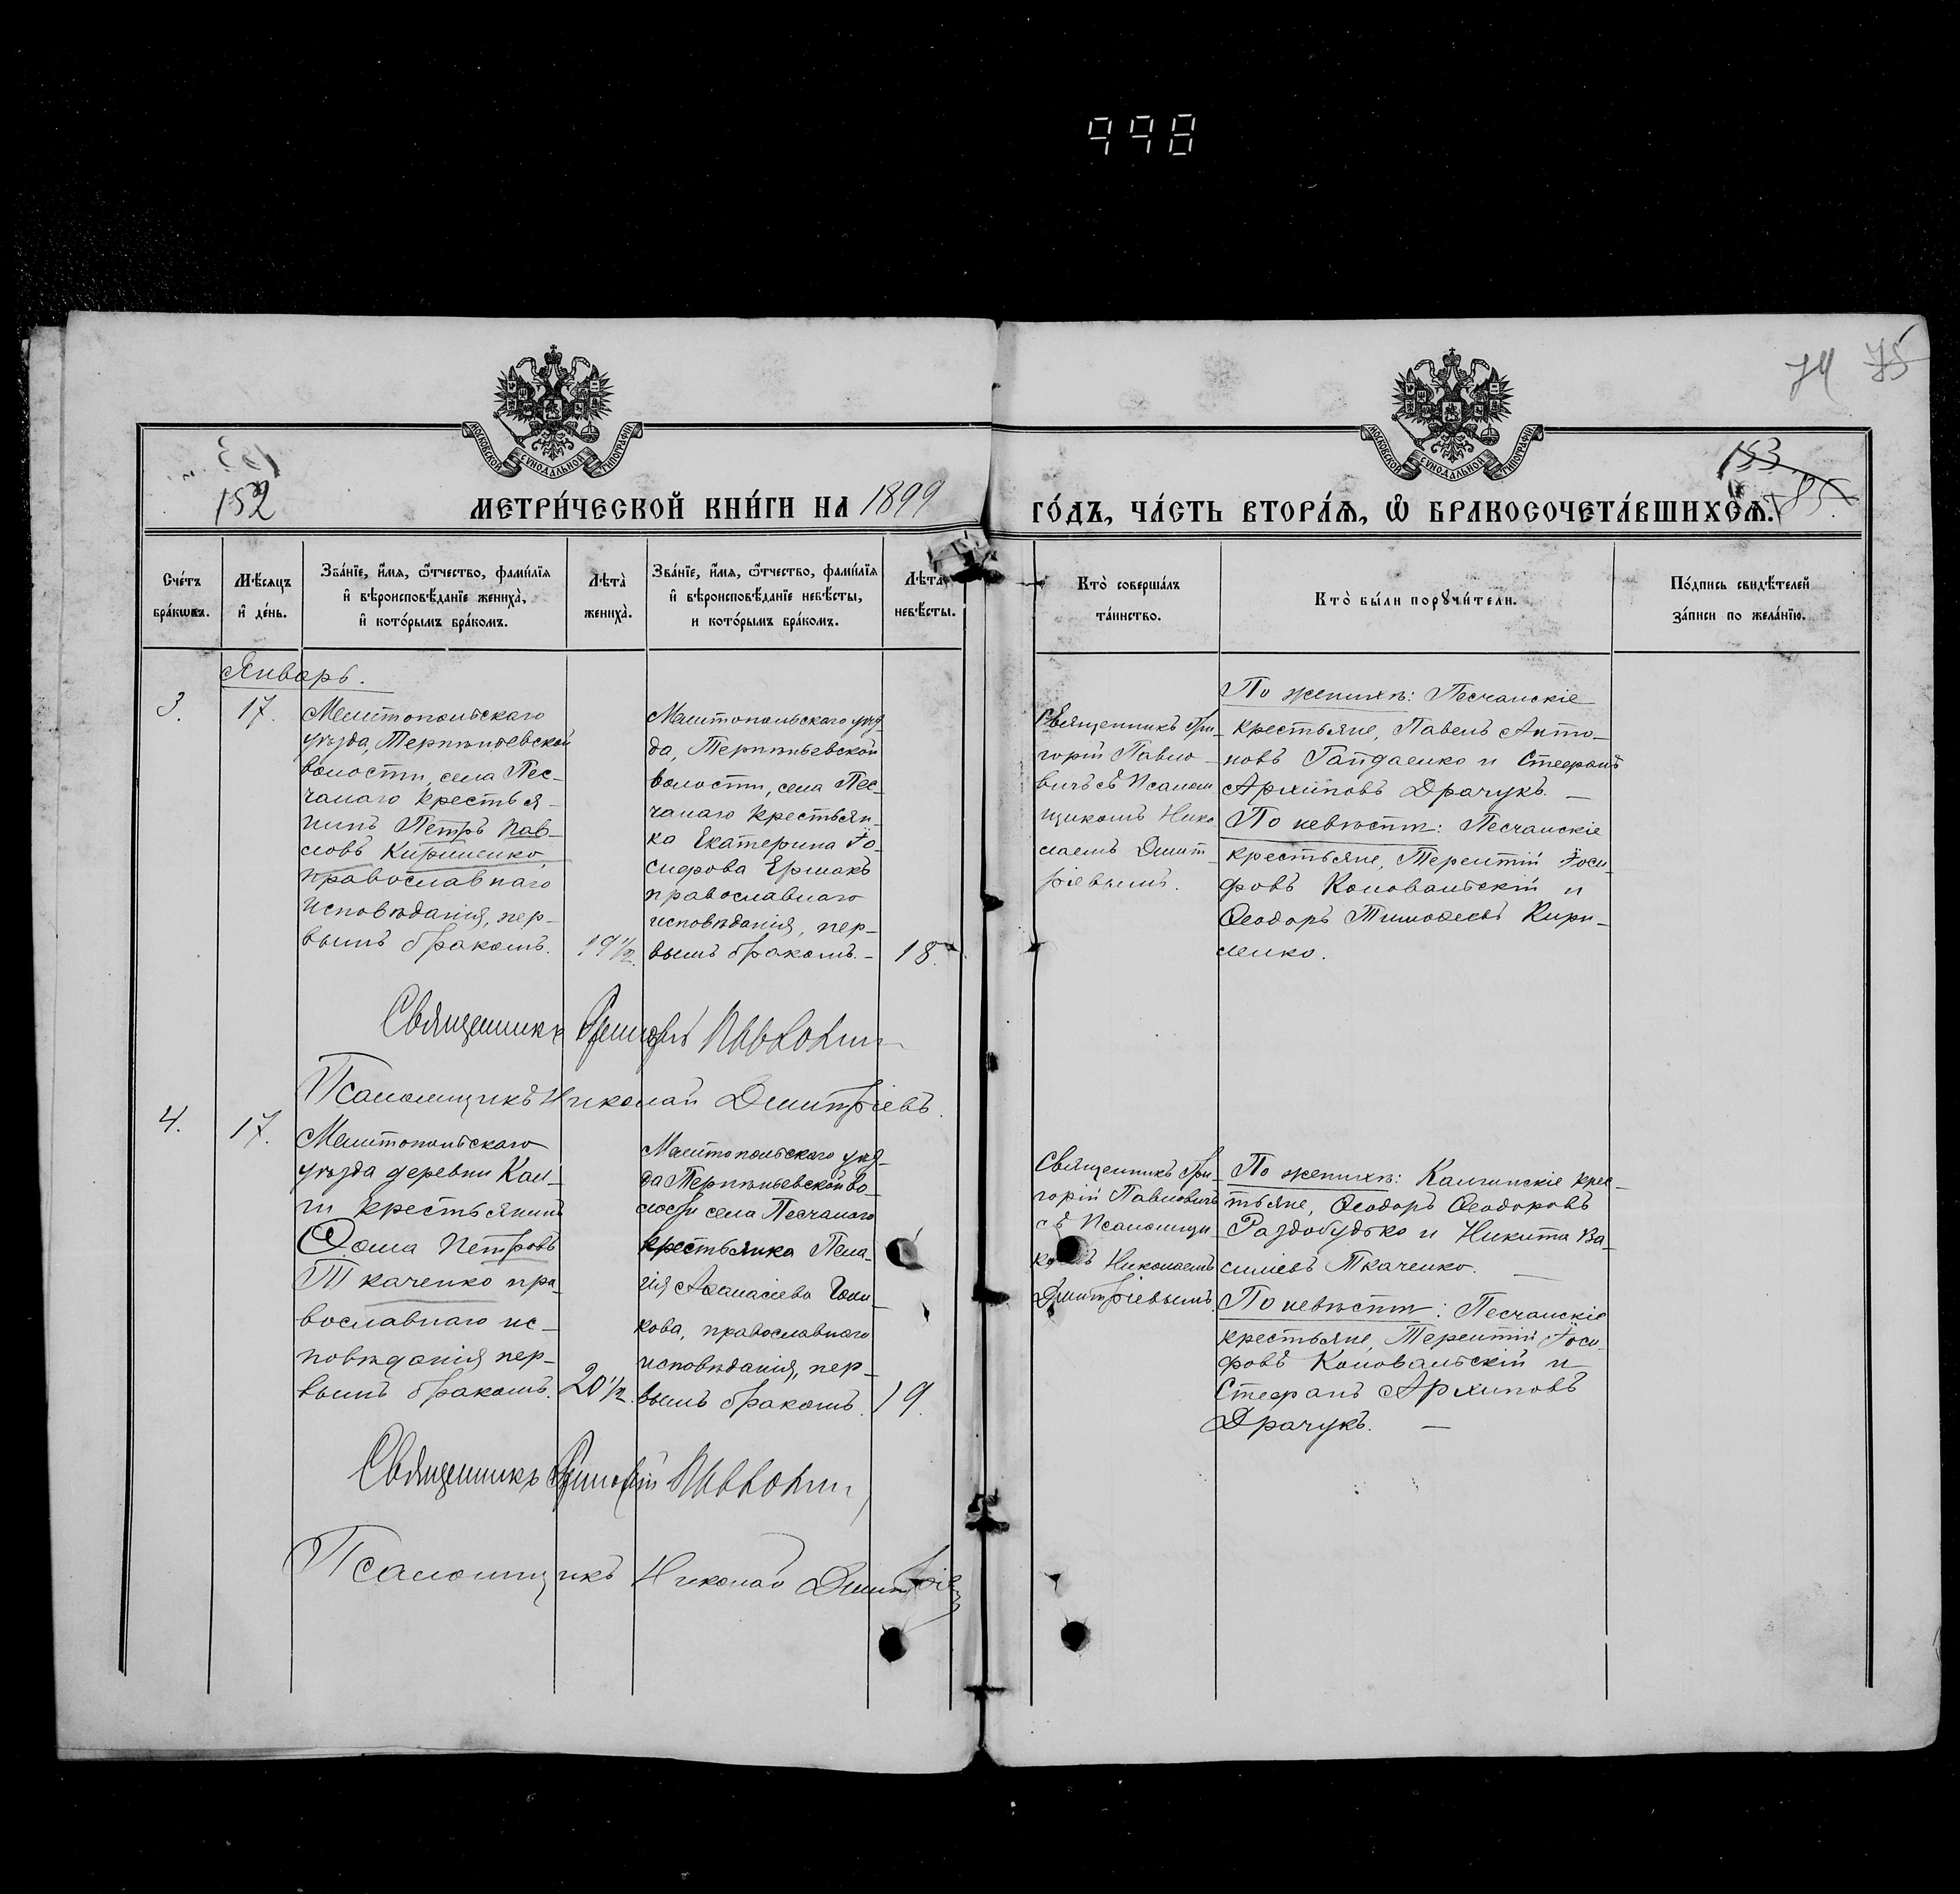 998
74 75
МОСКОВСКОЙ СѴНОДАЛЬНОЙ ТИПОГРАФІИ
МОСКОВСКОЙ СѴНОДАЛЬНОЙ ТИПОГРАФІИ
152
153
85.
МЕТРИ́ЧЕСКОЙ КНИ́ГИ НА 1899
ГО́ДЪ, ЧА́СТЬ ВТОРА́Ѧ, Ѡ҆ БРАКОСОЧЕТА́ВШИХСѦ.
Сче́тъ
бра́кѡвъ.
Мѣ́сяцъ
и҆ де́нь.
Зва́нїе, и҆́мя, ѻ҆́тчество, фами́лїя
и҆ вѣроисповѣ́данїе жениха̀,
и҆ кото́рымъ бра́комъ.
Лѣта̀
жениха̀.
Зва́нїе, и҆́мя, ѻ҆́тчество, фами́лїя
и҆ вѣроисповѣ́данїе невѣ́сты,
и кото́рымъ бра́комъ.
Лѣта̀
невѣ́сты.
Кто̀ соверша́лъ
та́инство.
Кто̀ бы́ли порꙋчи́тели.
По́дпись свидѣ́телей
за́писи по жела́нїю.
Январь.
3.
17.
Мелитопольскаго
уѣзда, Терпѣньевской
волости, села Пес-
чанаго крестья-
нинъ Петръ Пав-
ловъ Кириленко,
православнаго
исповѣданія, пер-
вымъ бракомъ.
19 1/2.
Мелитопольскаго уѣз-
да, Терпѣньевской
волости, села Пес-
чанаго крестьян-
ка Екатерина Іо-
сифова Ермакъ
православнаго
исповѣданія, пер-
вымъ бракомъ. -
18.
Священникъ Гри-
горій Павло-
вичъ съ псалом
щикомъ Нико
лаемъ Дмит-
ріевымъ.
По женихѣ: Песчанскіе
крестьяне, Павелъ Анто-
новъ Гайдаенко и Стефанъ
Архиповъ Драчукъ. —
По невѣстѣ: Песчанскіе
крестьяне, Терентій Іоси
фовъ Коновальскій и
Ѳеодоръ Тимоѳеевъ Кири-
ленко.
Священникъ Григорій Павловичъ
Псаломщикъ Николай Дмитріевъ.
4.
17.
Мелитопольскаго
уѣзда деревни Кал-
ги крестьянинъ
Ѳома Петровъ
Ткаченко пра-
вославнаго ис-
повѣданія пер-
вымъ бракомъ.
20 1/2.
Мелитопольскаго уѣз-
да Терпѣньевской во-
лости села Песчанаго
крестьянка Пела-
гія Аѳанасіева
кова, православнаго
исповѣданія, пер-
вымъ бракомъ.
19.
Священникъ Гри-
горій Павловичъ
съ псаломщи
комъ Николаемъ
Дмитріевымъ.
По женихѣ: Калгинскіе крес-
тьяне, Ѳеодоръ Ѳеодоровъ
Раздобудько и Никита Ва-
сильевъ Ткаченко. —
По невѣстѣ: Песчанскіе
крестьяне, Терентій Іоси-
фовъ Коновальскій и
Стефанъ Архиповъ
Драчукъ. —
Священникъ Григорій Павловичъ
Псаломщикъ Николай Дмитріевъ